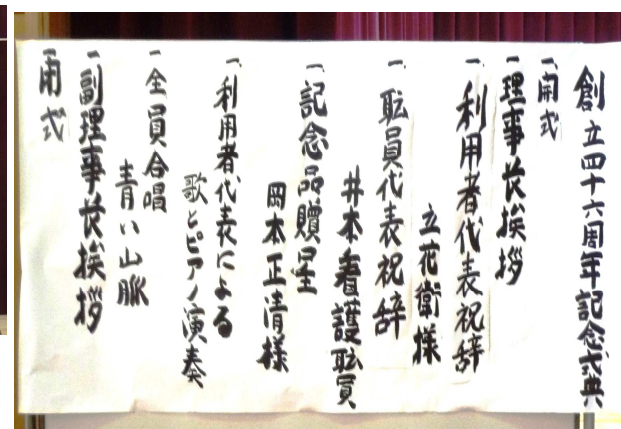 創立四十六周年記念式典
一、開式
一、理事長挨拶
一、利用者代表祝辞
立花衛様
一、耺員代表祝辞
井本看護耺員
一、記念品贈呈
岡本正清様
一、利用者代表による
歌とピアノ演奏
一、全員合唱
青い山脈
一、副理事長挨拶
一、閉式